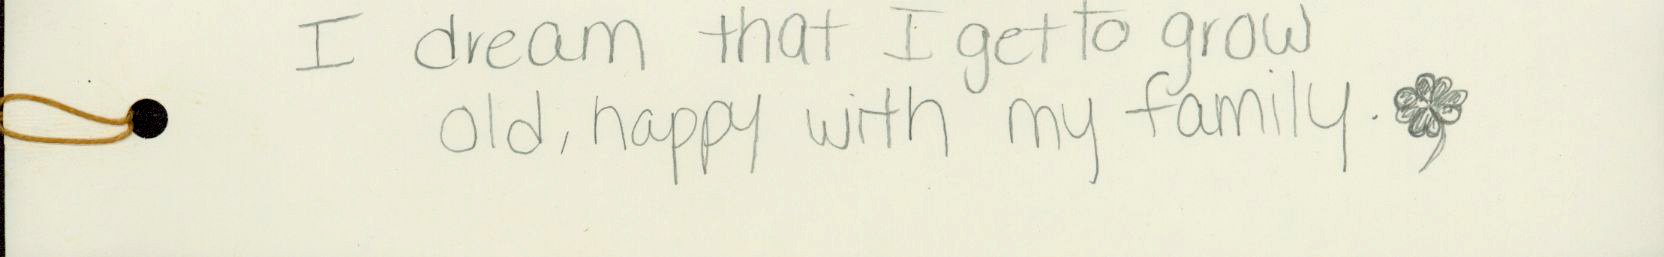 I dream that I get to grow
old, happy with my family.